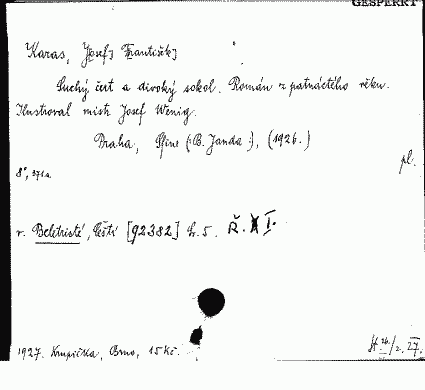 GESPERRT
Karas, Josef František
Suchý čert a divoký sokol. Román z patnáctého věku.
Ilustroval mistr Josef Wenig.
Praha, (B. Janda), (1926.)
pl.
8°, 371 s.
v. Beletristé, čeští [92382] č. 5. Ř. I.
1927. Krupička, Brno, 15 Kč.
27.